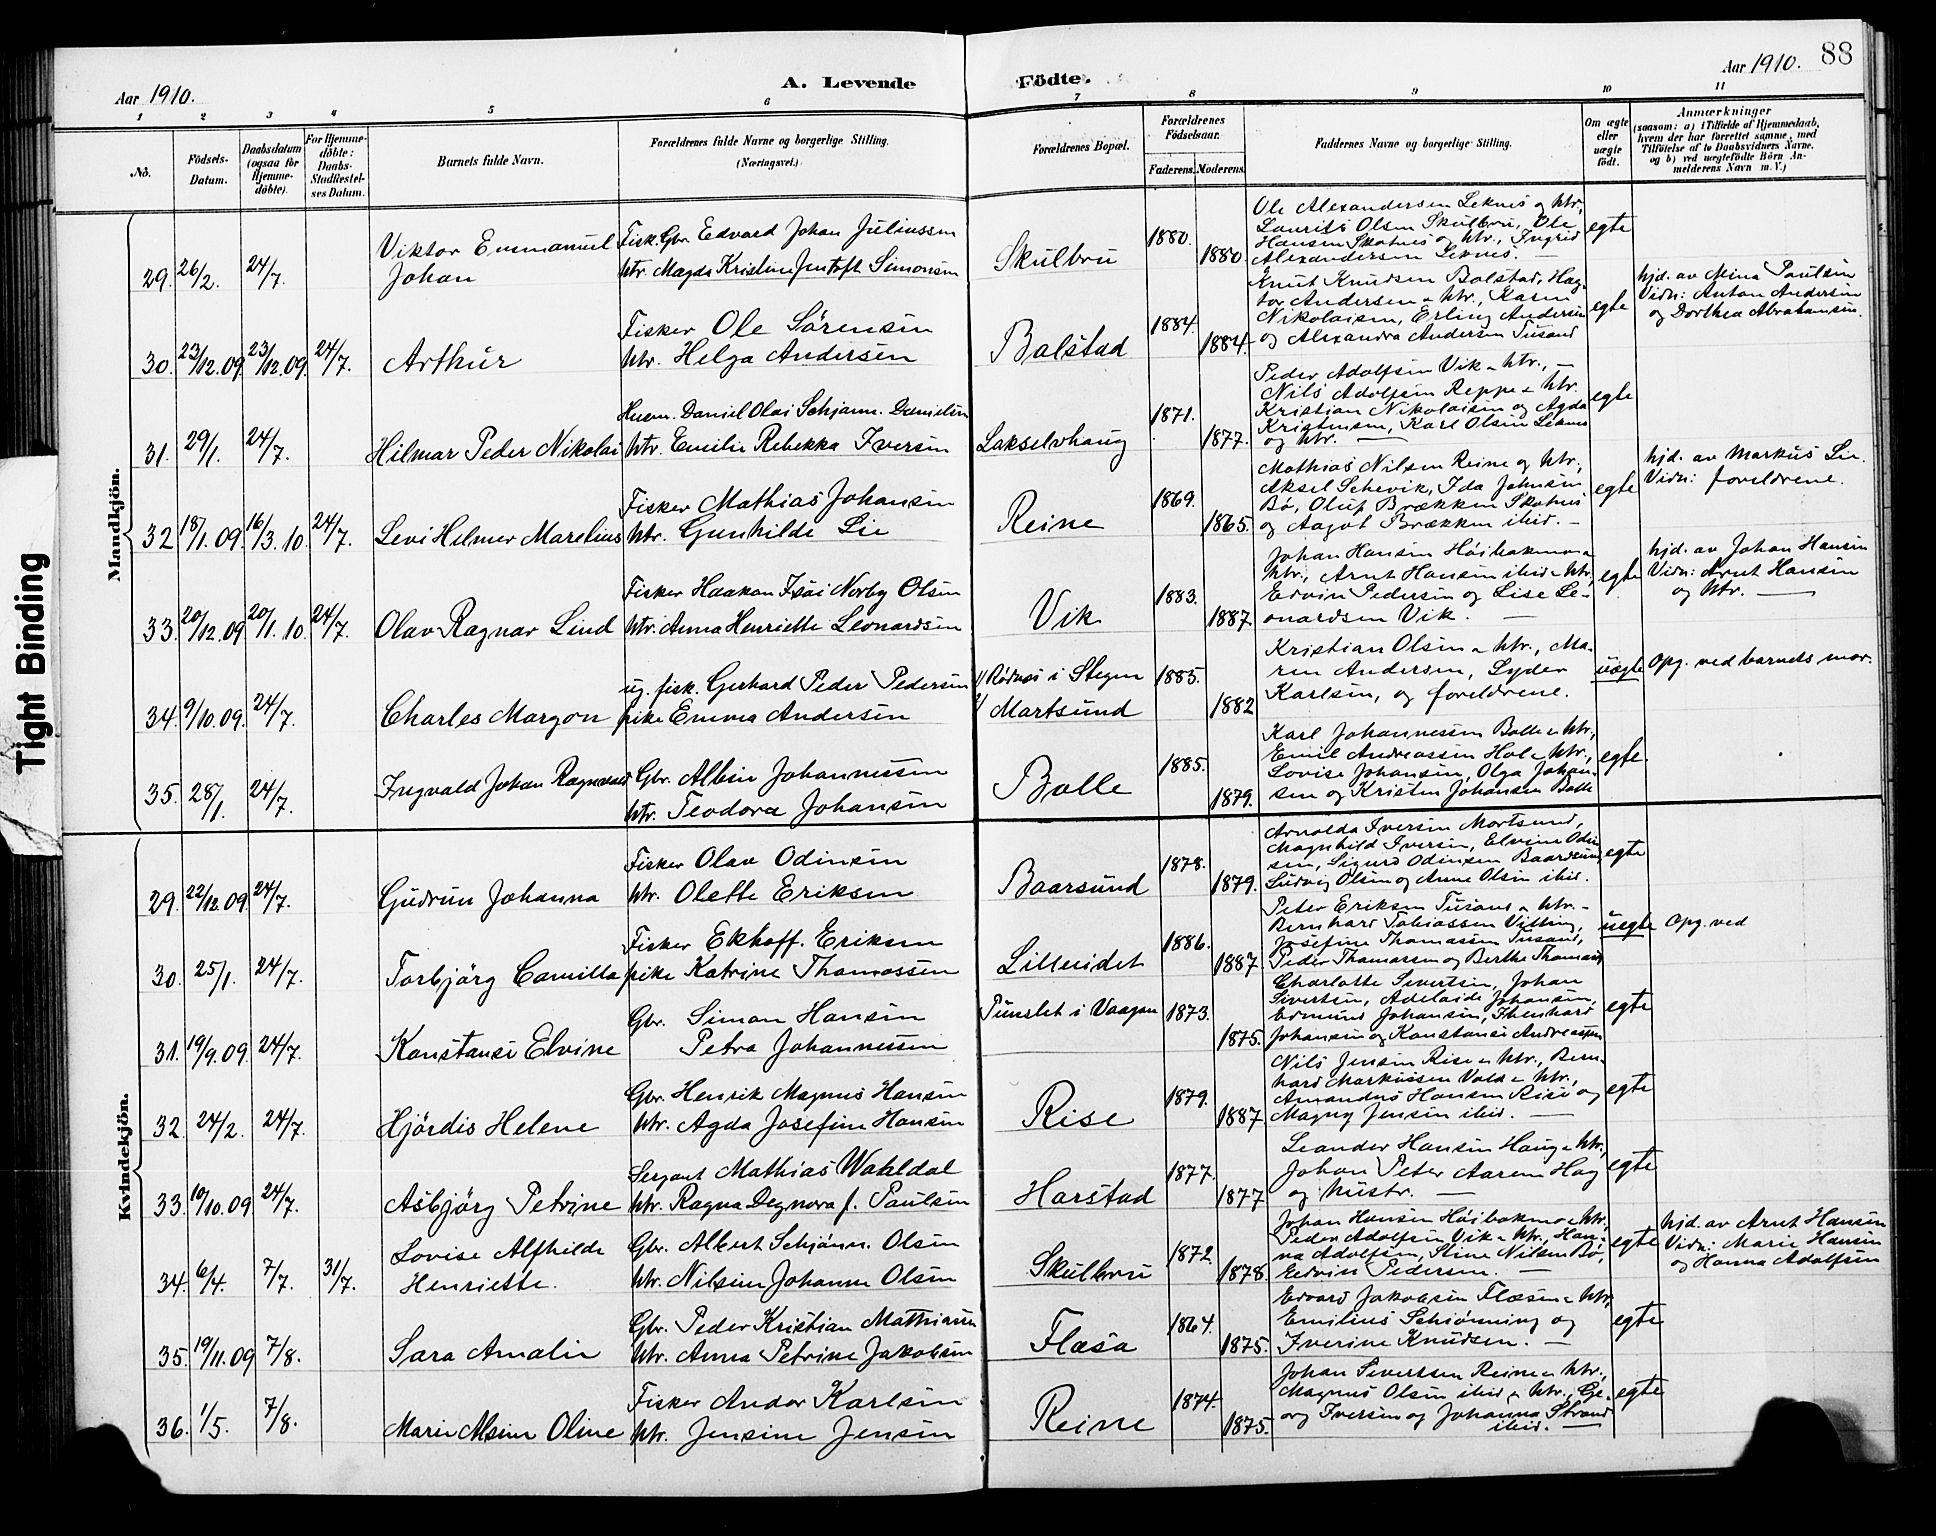 88
Aar 1910.
A. Levende Födte.
Aar 1910.
1 2 3 4 5 6 7 8 9 10 11
No.
Födsels-
Datum.
Daabsdatum
(ogsaa for
Hjemme-
döbte).
For Hjemme-
döbte:
Daabs-
Stadfæstel-
ses Datum.
Barnets fulde Navn.
Forældrenes fulde Navne og borgerlige Stilling.
(Næringsvei.)
Forældrenes Bopæl.
Forældrenes
Födselsaar.
Faderens. Moderens.
Faddernes Navne og borgerlige Stilling.
Om ægte
eller
uægte
födt.
Anmærkninger
(saasom: a) i Tilfælde af Hjemmedaab,
hvem der har forrettet samme, med
Tilföielse af to Daabsvidners Navne,
og b) ved uægtefödte Börn An-
melderens Navn m. V.)
Mandkjön.
29. 26/2. 24/7.
Viktor Emmanuel
Johan
Fisk. Gbr. Edvard Johan Juliussen
htr. Magda Kristine Jentoft Simonsen
Skulbru
1880.
1880
Ole Alexandersen Leknes og htr,
Laurits Olsen Skulbru, Ole
Hansen Skotnes og htr., Ingrid
Alexandersen Leknes. —
egte
30. 23/12.09. 23/12.09. 24/7.
Arthur
Fisker Ole Sörensen
htr. Helga Andersen
Balstad
1884.
1884.
Knut Knudsen Balstad, Hag-
tor Andersen & htr., Karen
Nikolaisen, Erling Andersen
og Alexandra Andersen Tusand
egte
hjd. av Mina Paulsen
Vidn: Anton Andersen
og Dorthea Abrahamsen.
31. 29/1. 24/7.
Hilmar Peder Nikolai
Husm. Daniel Olai Schjann. Danielsen
htr. Emilie Rebekka Iversen
Lakselvhaug
1871.
1877.
Peder Adolfsen Vik & htr., —
Nils Adolfsen Reppe & htr.
Kristian Nikolaisen og Agda
Kristensen, Karl Olsen Leknes
og htr. —
egte
32 18/1.09. 16/3.10. 24/7.
Levi Helmer Marelius
Fisker Mathias Johansen
htr. Gunhilde Lie
Reine
1869.
1865.
Mathias Nilsen Reine og htr,
Aksel Schevik, Ida Johnsen
Bö, Oluf Brækken Skotnes
og Aagot Brækken ibid. —
egte
hjd. av Markus Lie.
Vidn: foreldrene.
33. 20/12.09. 20/1.10. 24/7.
Olav Ragnar Lind
Fisker Haakon Isai Norby Olsen
htr. Anna Henriette Leonardsen
Vik
1883.
1887.
Johan Hansen Höibakmo &
htr., Arnt Hansen ibid & htr,
Edvin Pedersen og Lise Le-
onardsen Vik. —
egte
hjd. av Johan Hansen
Vidn: Arnt Hansen
og htr. —
34. 9/10.09. 24/7.
Charles Margon
ug. fisk. Gerhard Peder Pedersen
pike Emma Andersen
1/ i Stegen
2/ Mortsund
1885.
1882
Kristian Olsen & htr., Ma-
ren Andersen, Lyder
Karlsen, og foreldrene.
uegte
Opg. ved barnets mor.
35. 28/1. 24/7.
Ingvald Johan Ragnvald
Gbr. Albin Johannessen
htr. Teodora Johansen
Bolle
1885.
1879.
Karl Johannessen Bolle & htr,
Emil Andreassen Hol & htr.,
Lovise Johansen, Olga Johan-
sen og Kristin Johansen Bolle
egte
Kvindekjön.
29. 22/12.09. 24/7.
Gudrun Johanna
Fisker Olav Odinsen
htr. Olette Eriksen
Baarsund
1878.
1879.
Arnolda Iversen Mortsund,
Magnhild Iversen, Elvine Odin
sen, Sigurd Odinsen Baardsund
Ludvig Olsen og Anne Olsen ibid.
egte
30. 25/1. 24/7.
Torbjörg Camilla
Fisker Ekhoff. Eriksen
pike Katrine Thomassen
Lilleeidet
1886.
1887
Peter Eriksen Tusand & htr. —
Bernhard Tobiassen Vitting,
Josefine Thomassen Tusand,
Peder Thomassen og Berthe Thomass
uegte
Opg. ved
31. 19/9.09. 24/7.
Konstanse Elvine
Gbr. Simon Hansen
Petra Johannessen
i Vaagan
1873.
1875.
Charlotte Sivertsen, Johan
Sivertsen, Adelaide Johansen,
Edmund Johansen,
Johansen og Konstanse Andreassen
egte
32. 24/2. 24/7.
Hjördis Helene
Gbr. Henrik Magnus Hansen
htr. Agda Josefine Hansen
Rise
1879.
1887
Nils Jensen Rise & htr., Bern-
hard Markussen Vold & htr.,
Amandus Hansen Rise og
Magny Jensen ibid. —
egte
33. 10/10.09 24/7.
Asbjörg Petrine
Sergant Mathias Wahldal
htr. Ragna Degnora f. Paulsen
Harstad
1877.
1877
Leander Hansen Haug & htr.
Johan Peter Aaren Hag
og hustr. —
egte
34. 6/4. 7/7. 31/7.
Lovise Alfhilde
Henriette.
Gbr. Albert Schjönn. Olsen
htr. Nilsine Johanne Olsen
Skulbru
1872.
1878.
Johan Hansen Höibakmo & htr,
Peder Adolfsen Vik & htr., Han-
na Adolfsen, Stine Nilsen Bö,
Edvin Pedersen. —
egte
hjd. av Arnt Hansen
Vidn: Marie Hansen
og Hanna Adolfsen
35. 19/11.09 7/8.
Sara Amalie
Gbr. Peder Kristian Mathiasen
htr. Anna Petrine Jakobsen
Flæsa
1864.
1875.
Edvard Jakobsen Flæsen & htr,
Emilius Schiönning og
Iverine Knudsen. —
egte
36. 1/5. 7/8.
Marie Alsine Oline
Fisker Andor Karlsen
htr. Jensine Jensen
Reine
1874.
1875.
Johan Sivertsen Reine & htr.,
Magnus Olsen ibid & htr., Ge-
org Iversen og Johanna Strand
ibid. —
egte
Tight Binding